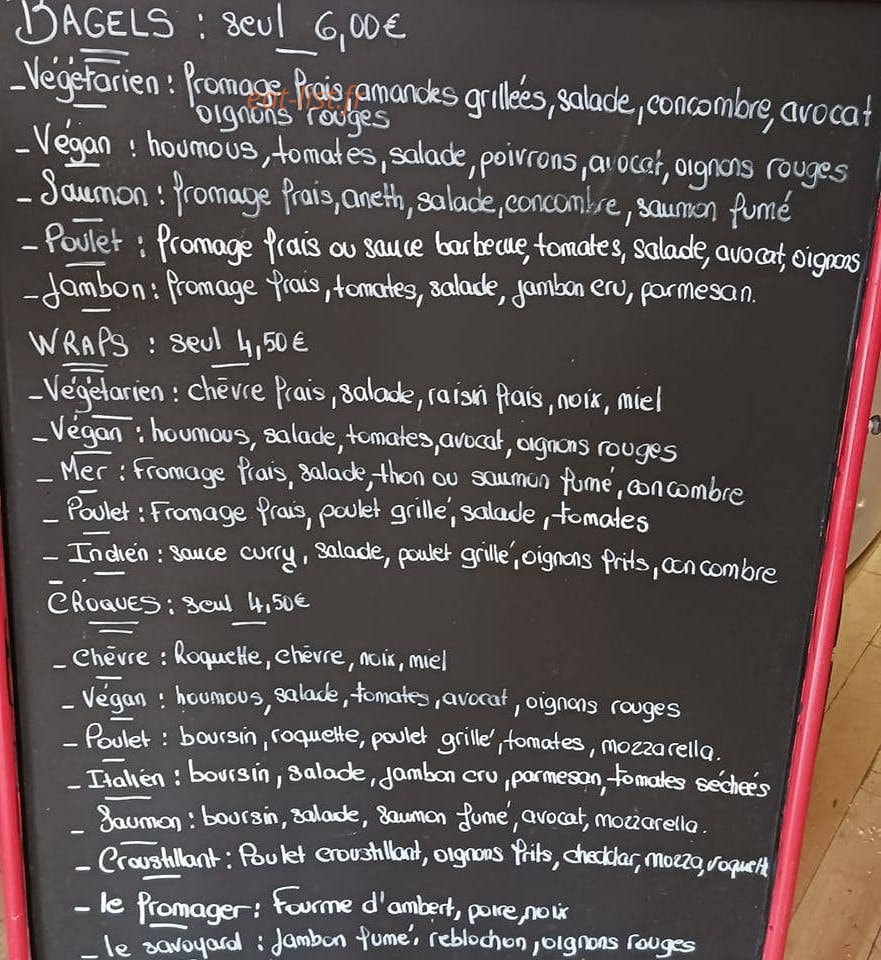 BAGELS : seul 6,00€
- Végétarien : fromage frais, amandes grillées, salade, concombre, avocat
oignons rouges
- Végan : houmous, tomates, salade, poivrons, avocat, oignons rouges
- Saumon : fromage frais, aneth, salade, concombre, saumon fumé
- Poulet : fromage frais ou sauce barbecue, tomates, salade, avocat, oignons
- Jambon : fromage frais, tomates, salade, jambon cru, parmesan.
WRAPS : seul 4,50€
- Végétarien : chèvre frais, salade, raisin frais, noix, miel
- Végan : houmous, salade, tomates, avocat, oignons rouges
- Mer : Fromage frais, salade, thon ou saumon fumé, concombre
- Poulet : Fromage frais, poulet grillé, salade, tomates
- Indien : sauce curry, salade, poulet grillé, oignons frits, concombre
CROQUES : seul 4,50€
- Chèvre : Roquette, chèvre, noix, miel
- Végan : houmous, salade, tomates, avocat, oignons rouges
- Poulet : boursin, roquette, poulet grillé, tomates, mozzarella.
- Italien : boursin, salade, jambon cru, parmesan, tomates séchées
- Saumon : boursin, salade, saumon fumé, avocat, mozzarella.
- Croustillant : Poulet croustillant, oignons frits, cheddar, mozza, roquett
- le fromager : Fourme d'ambert, poire, noix
- le savoyard : Jambon fumé, reblochon, oignons rouges
eat-list.fr